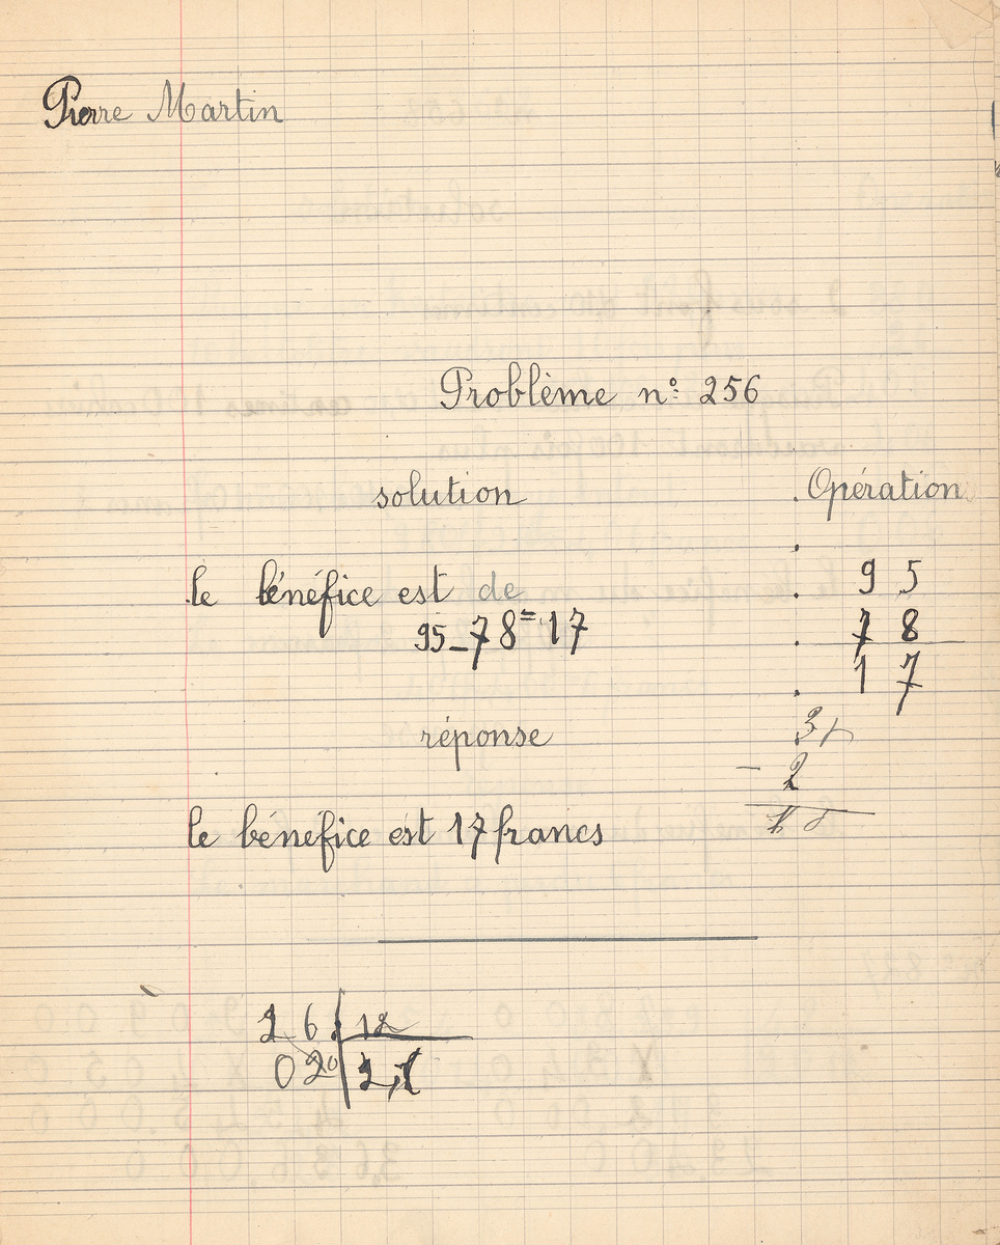 Pierre Martin
Problème n° 256
solution
Opération
le bénéfice est de
95
95-78=17
78
17
réponse
- 2
le bénefice est 17 francs
26 12
020